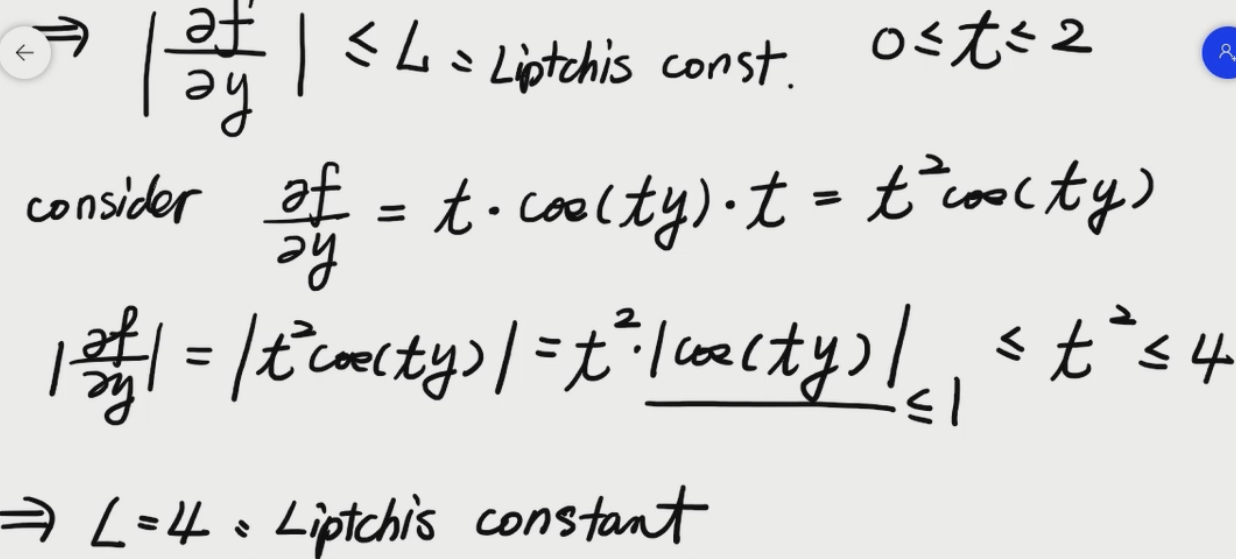 ⇒ |∂f/∂y| ≤ L : Liptchis const. 0 ≤ t ≤ 2
consider ∂f/∂y = t · cos(ty) · t = t² cos(ty)
|∂f/∂y| = |t² cos(ty)| = t² · |cos(ty)| ≤ 1 ≤ t² ≤ 4
⇒ L = 4 : Liptchis constant